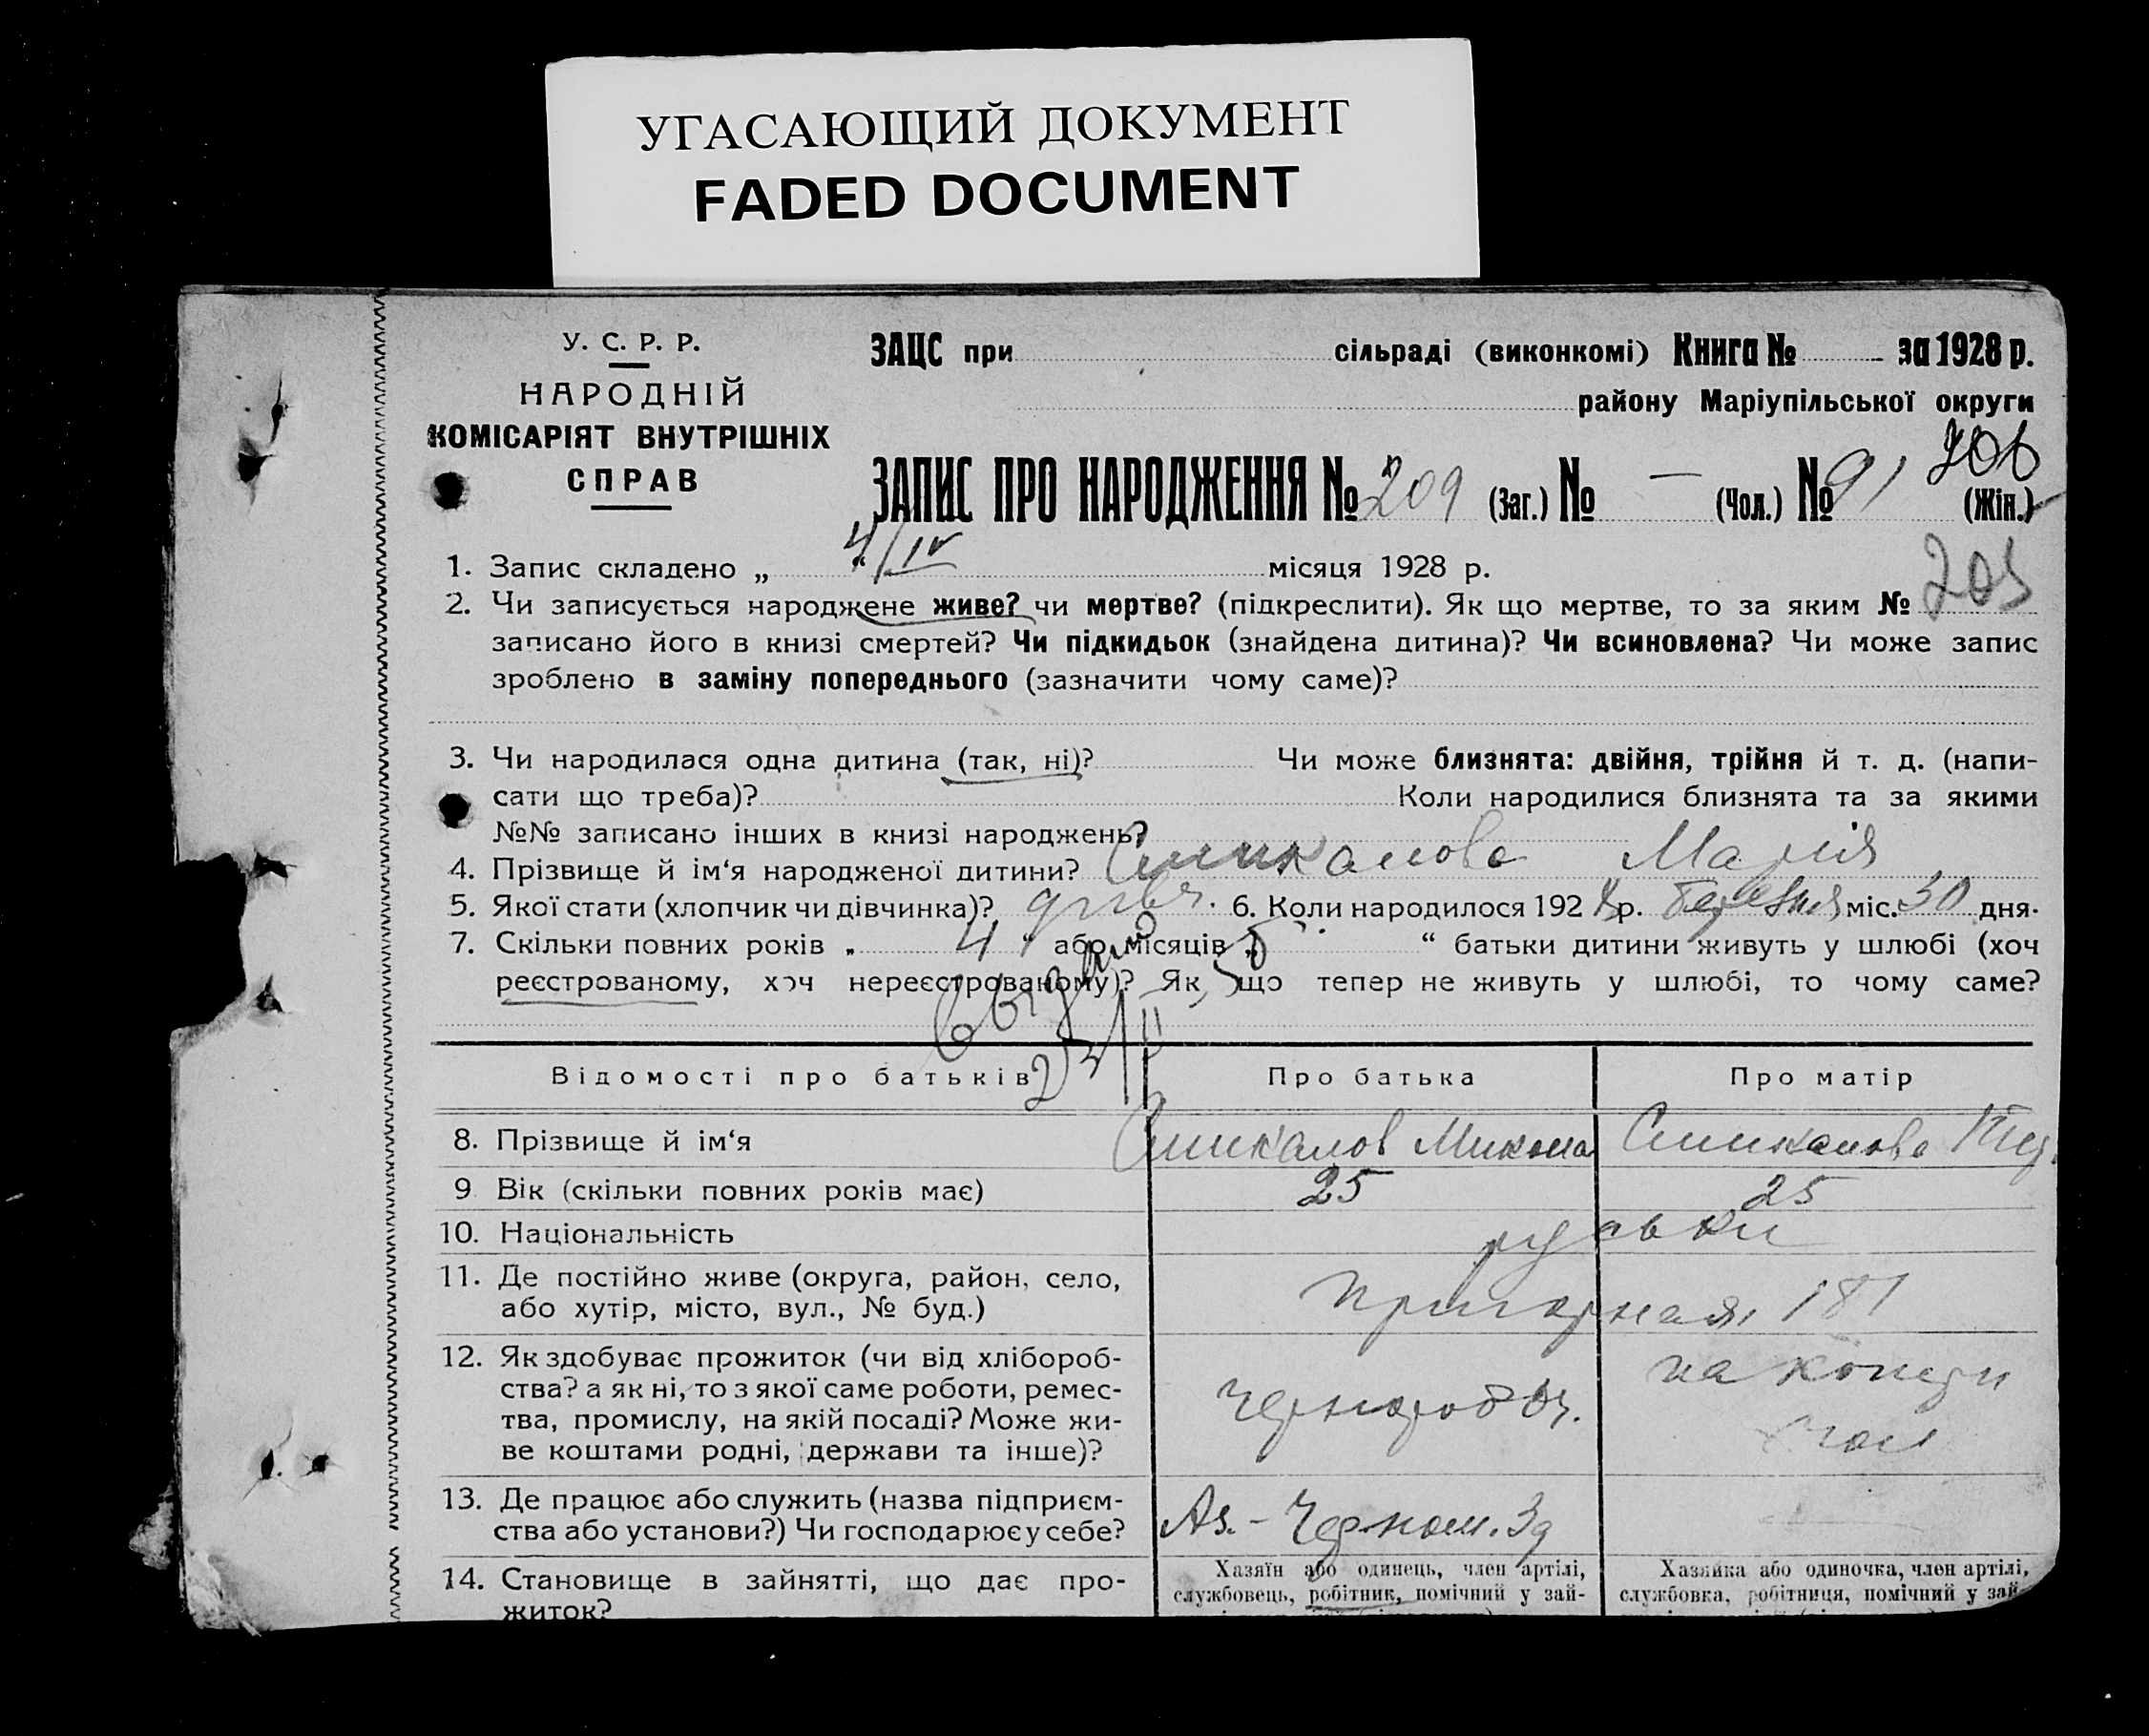 УГАСАЮЩИЙ ДОКУМЕНТ
FADED DOCUMENT
У. С. Р. Р.
НАРОДНІЙ
КОМІСАРІЯТ ВНУТРІШНІХ
СПРАВ
ЗАЦС при сільраді (виконкомі) Книга № за 1928 р.
району Маріупільської округи
206
ЗАПИС ПРО НАРОДЖЕННЯ № 209 (Заг.) № — (Чол.) № 91 (Жін.)
1. Запис складено „ 4/IV місяця 1928 р.
2. Чи записується народжене живе? чи мертве? (підкреслити). Як що мертве, то за яким № 205
записано його в книзі смертей? Чи підкидьок (знайдена дитина)? Чи всиновлена? Чи може запис
зроблено в заміну попереднього (зазначити чому саме)?
3. Чи народилася одна дитина (так, ні)? Чи може близнята: двійня, трійня й т. д. (напи-
сати що треба)? Коли народилися близнята та за якими
№№ записано інших в книзі народжень?
4. Прізвище й ім‘я народженої дитини? Марія
5. Якої статі (хлопчик чи дівчинка)? дівч. 6. Коли народилось 192 8 р. березня міс. 30 дня.
7. Скільки повних років „ 4 “ або місяців „ 5 “ батьки дитини живуть у шлюбі (хоч
реєстрованому, хоч нереєстрованому)? Як що тепер не живуть у шлюбі, то чому саме?
Відомості про батьків Про батька Про матір
8. Прізвище й ім‘я Микола
9 Вік (скільки повних років має) 25 25
10. Національність руськи
11. Де постійно живе (округа, район, село, Пригорная, 181
або хутір, місто, вул., № буд.)
12. Як здобуває прожиток (чи від хлібороб-
ства? а як ні, то з якої саме роботи, ремес-
тва, промислу, на якій посаді? Може жи-
ве коштами родні, держави та інше)?
Чернороб
на
13. Де працює або служить (назва підприєм-
ства або установи?) Чи господарює у себе?
14. Становище в зайнятті, що дає про-
житок?
Хазяїн або одинець, член артілі,
службовець, робітник, помічний у зай-
Хазяйка або одиночка, член артілі,
службовка, робітниця, помічний у зай-